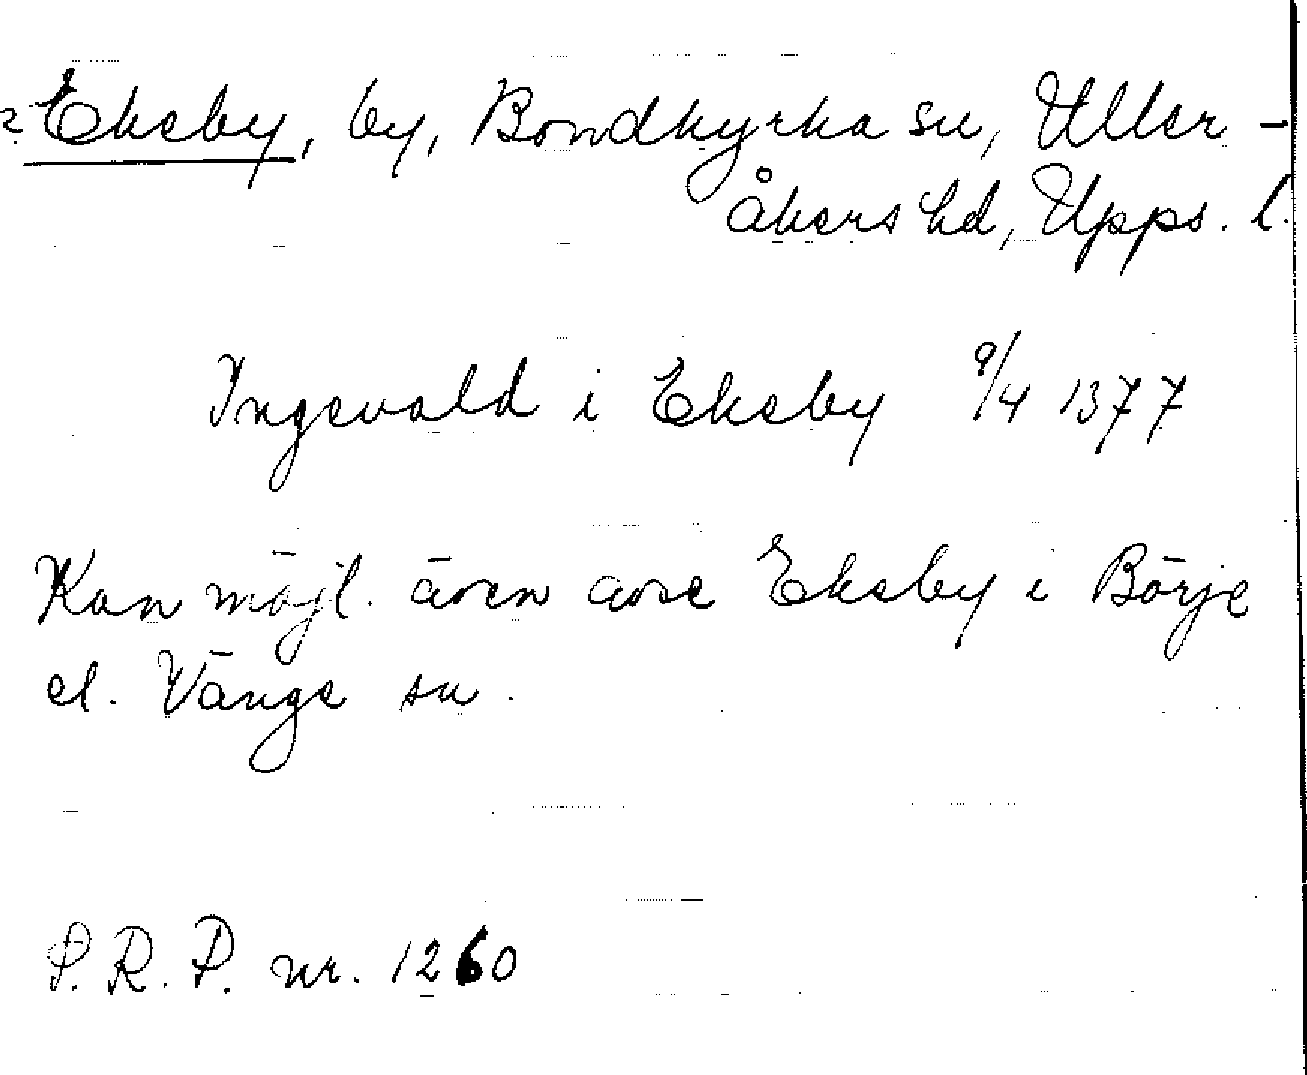 ? Ekeby, by, Bondkyrka sn, Uller-
åkers hd, Upps. l.
Ingevald i Ekeby 9/4 1377
Kan möjl. även avse Ekeby i Börje
el. Vänge sn.
S.R.P. nr. 1260